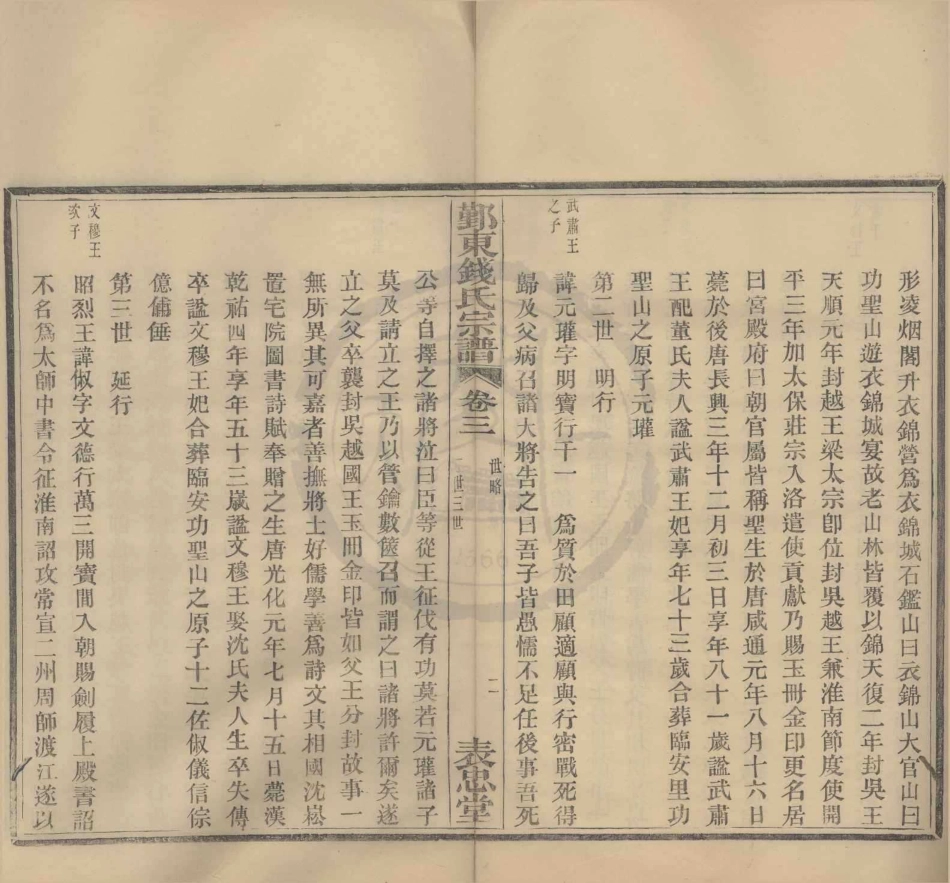 形凌烟閣升衣錦營爲衣錦城石鑑山曰衣錦山大官山曰
功聖山遊衣錦城宴故老山林皆覆以錦天復二年封吳王
天順元年封越王梁太宗卽位封吳越王兼淮南節度使開
平三年加太保莊宗入洛遣使貢獻乃賜玉冊金印更名居
曰宮殿府曰朝官屬皆稱聖生於唐咸通元年八月十六日
薨於後唐長興三年十二月初三日享年八十一歲謚武肅
王配董氏夫人謚武肅王妃享年七十三歲合葬臨安里功
聖山之原子元瓘
第二世 明行
武肅王
之子
諱元瓘字明寶行十一 爲質於田頵適頵與行密戰死得
歸及父病召諸大將告之曰吾子皆愚懦不足任後事吾死
鄞東錢氏宗譜 卷三
世略
二世三世
二
表忠堂
公等自擇之諸將泣曰臣等從王征伐有功莫若元瓘諸子
莫及請立之王乃以管鑰數篋召而謂之曰諸將許爾矣遂
立之父卒襲封吳越國王玉冊金印皆如父王分封故事一
無所異其可嘉者善撫將士好儒學善爲詩文其相國沈崧
置宅院圖書詩賦奉贈之生唐光化元年七月十五日薨漢
乾祐四年享年五十三歲謚文穆王娶沈氏夫人生卒失傳
卒謚文穆王妃合葬臨安功聖山之原子十二佐俶儀信倧
億偡𠋫
第三世 延行
文穆王
次子
昭烈王諱俶字文德行萬三開寶間入朝賜劍履上殿書詔
不名爲太師中書令征淮南詔攻常宣二州周師渡江遂以